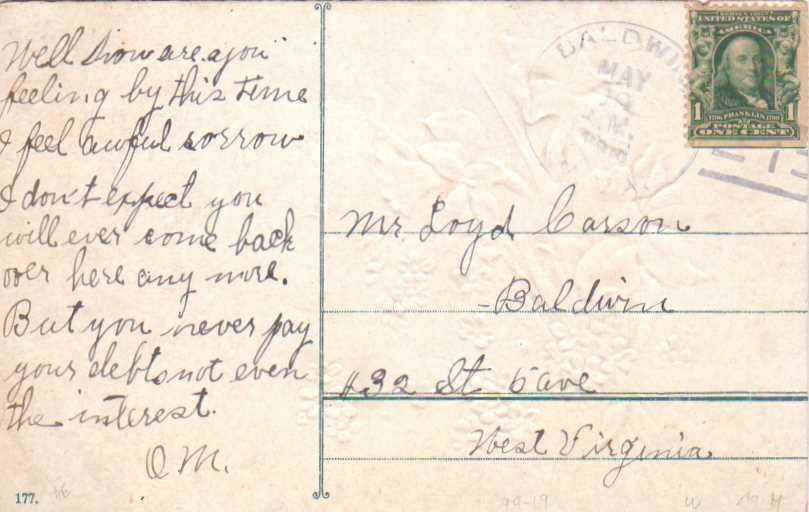 Well how are you
feeling by this time
I feel awful sorrow
I don't expect you
will ever come back
over here any more.
But you never pay
your debts not even
the interest.
O M.
177.
BALDWIN
MAY
UNITED STATES OF
AMERICA
1 1706 FRANKLIN 1790 1
POSTAGE
ONE CENT
Mr. Loyd Carson
Baldwin
#32 St 6 ave
West Virginia